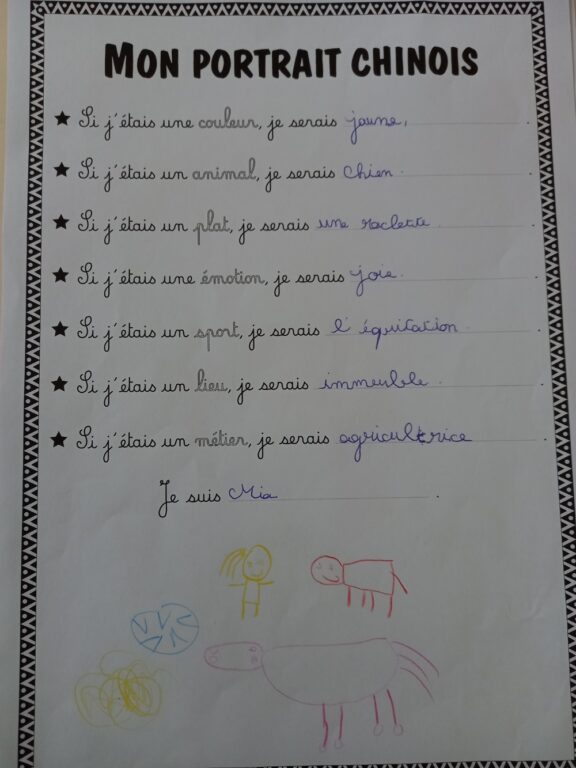 MON PORTRAIT CHINOIS
★ Si j'étais une couleur, je serais jaune, .
★ Si j'étais un animal, je serais chien .
★ Si j'étais un plat, je serais une raclette .
★ Si j'étais une émotion, je serais joie .
★ Si j'étais un sport, je serais l'équitation .
★ Si j'étais un lieu, je serais immeuble .
★ Si j'étais un métier, je serais agricultrice .
Je suis Mia .